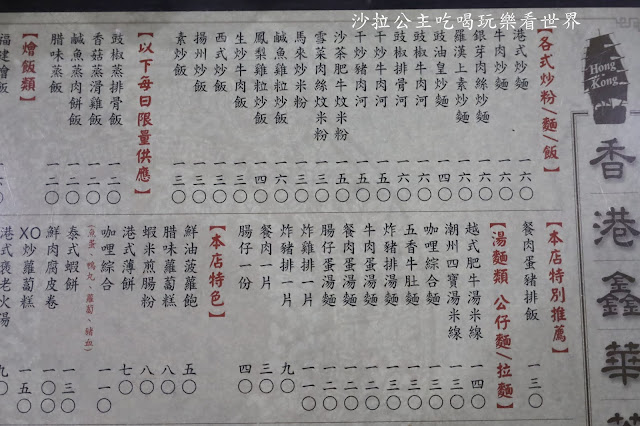 沙拉公主吃喝玩樂看世界
Hong Kong
香港鑫華
【各式炒粉/麵/飯】
港式炒麵 一六〇
牛肉炒麵 一六〇
銀芽肉絲炒麵 一六〇
羅漢上素炒麵 一三〇
豉油皇炒麵 一四〇
豉椒牛肉河 一六〇
豉椒排骨河 一六〇
干炒牛肉河 一六〇
干炒豬肉河 一五〇
沙茶肥牛炆米粉 一五〇
雪菜肉絲炆米粉 一五〇
馬來炒米粉 一六〇
鹹魚雞粒炒飯 一六〇
鳳梨雞粒炒飯 一四〇
生炒牛肉飯 一三〇
西式炒飯 一三〇
揚州炒飯 一三〇
素炒飯 一三〇
【以下每日限量供應】
豉椒蒸排骨飯 一二〇
香菇蒸滑雞飯 一二〇
鹹魚蒸肉餅飯 一二〇
腊味蒸飯 一二〇
【燴飯類】
福建燴飯 一六〇
【本店特別推薦】
餐肉蛋豬排飯 一三〇
【湯麵類 公仔麵/拉麵】
越式肥牛湯米線 一四〇
潮州四寶湯米線 一三〇
咖哩綜合麵 一三〇
五香牛肚麵 一三〇
炸豬排湯麵 一三〇
牛肉蛋湯麵 一二〇
餐肉蛋湯麵 一一〇
腸仔蛋湯麵 一一〇
炸雞排一片 一一〇
炸豬排一片 九〇
餐肉一片 三〇
腸仔一份 四〇
【本店特色】
鮮油菠蘿飽 五〇
腊味蘿蔔糕 八〇
蝦米煎腸粉 八〇
港式薄餅 七〇
咖哩綜合 一一〇
(魚蛋、鴨丸、蘿蔔、豬血)
泰式蝦餅 一三〇
鮮肉腐皮卷 一〇〇
XO炒蘿蔔糕 一五〇
港式褒老火湯 九〇